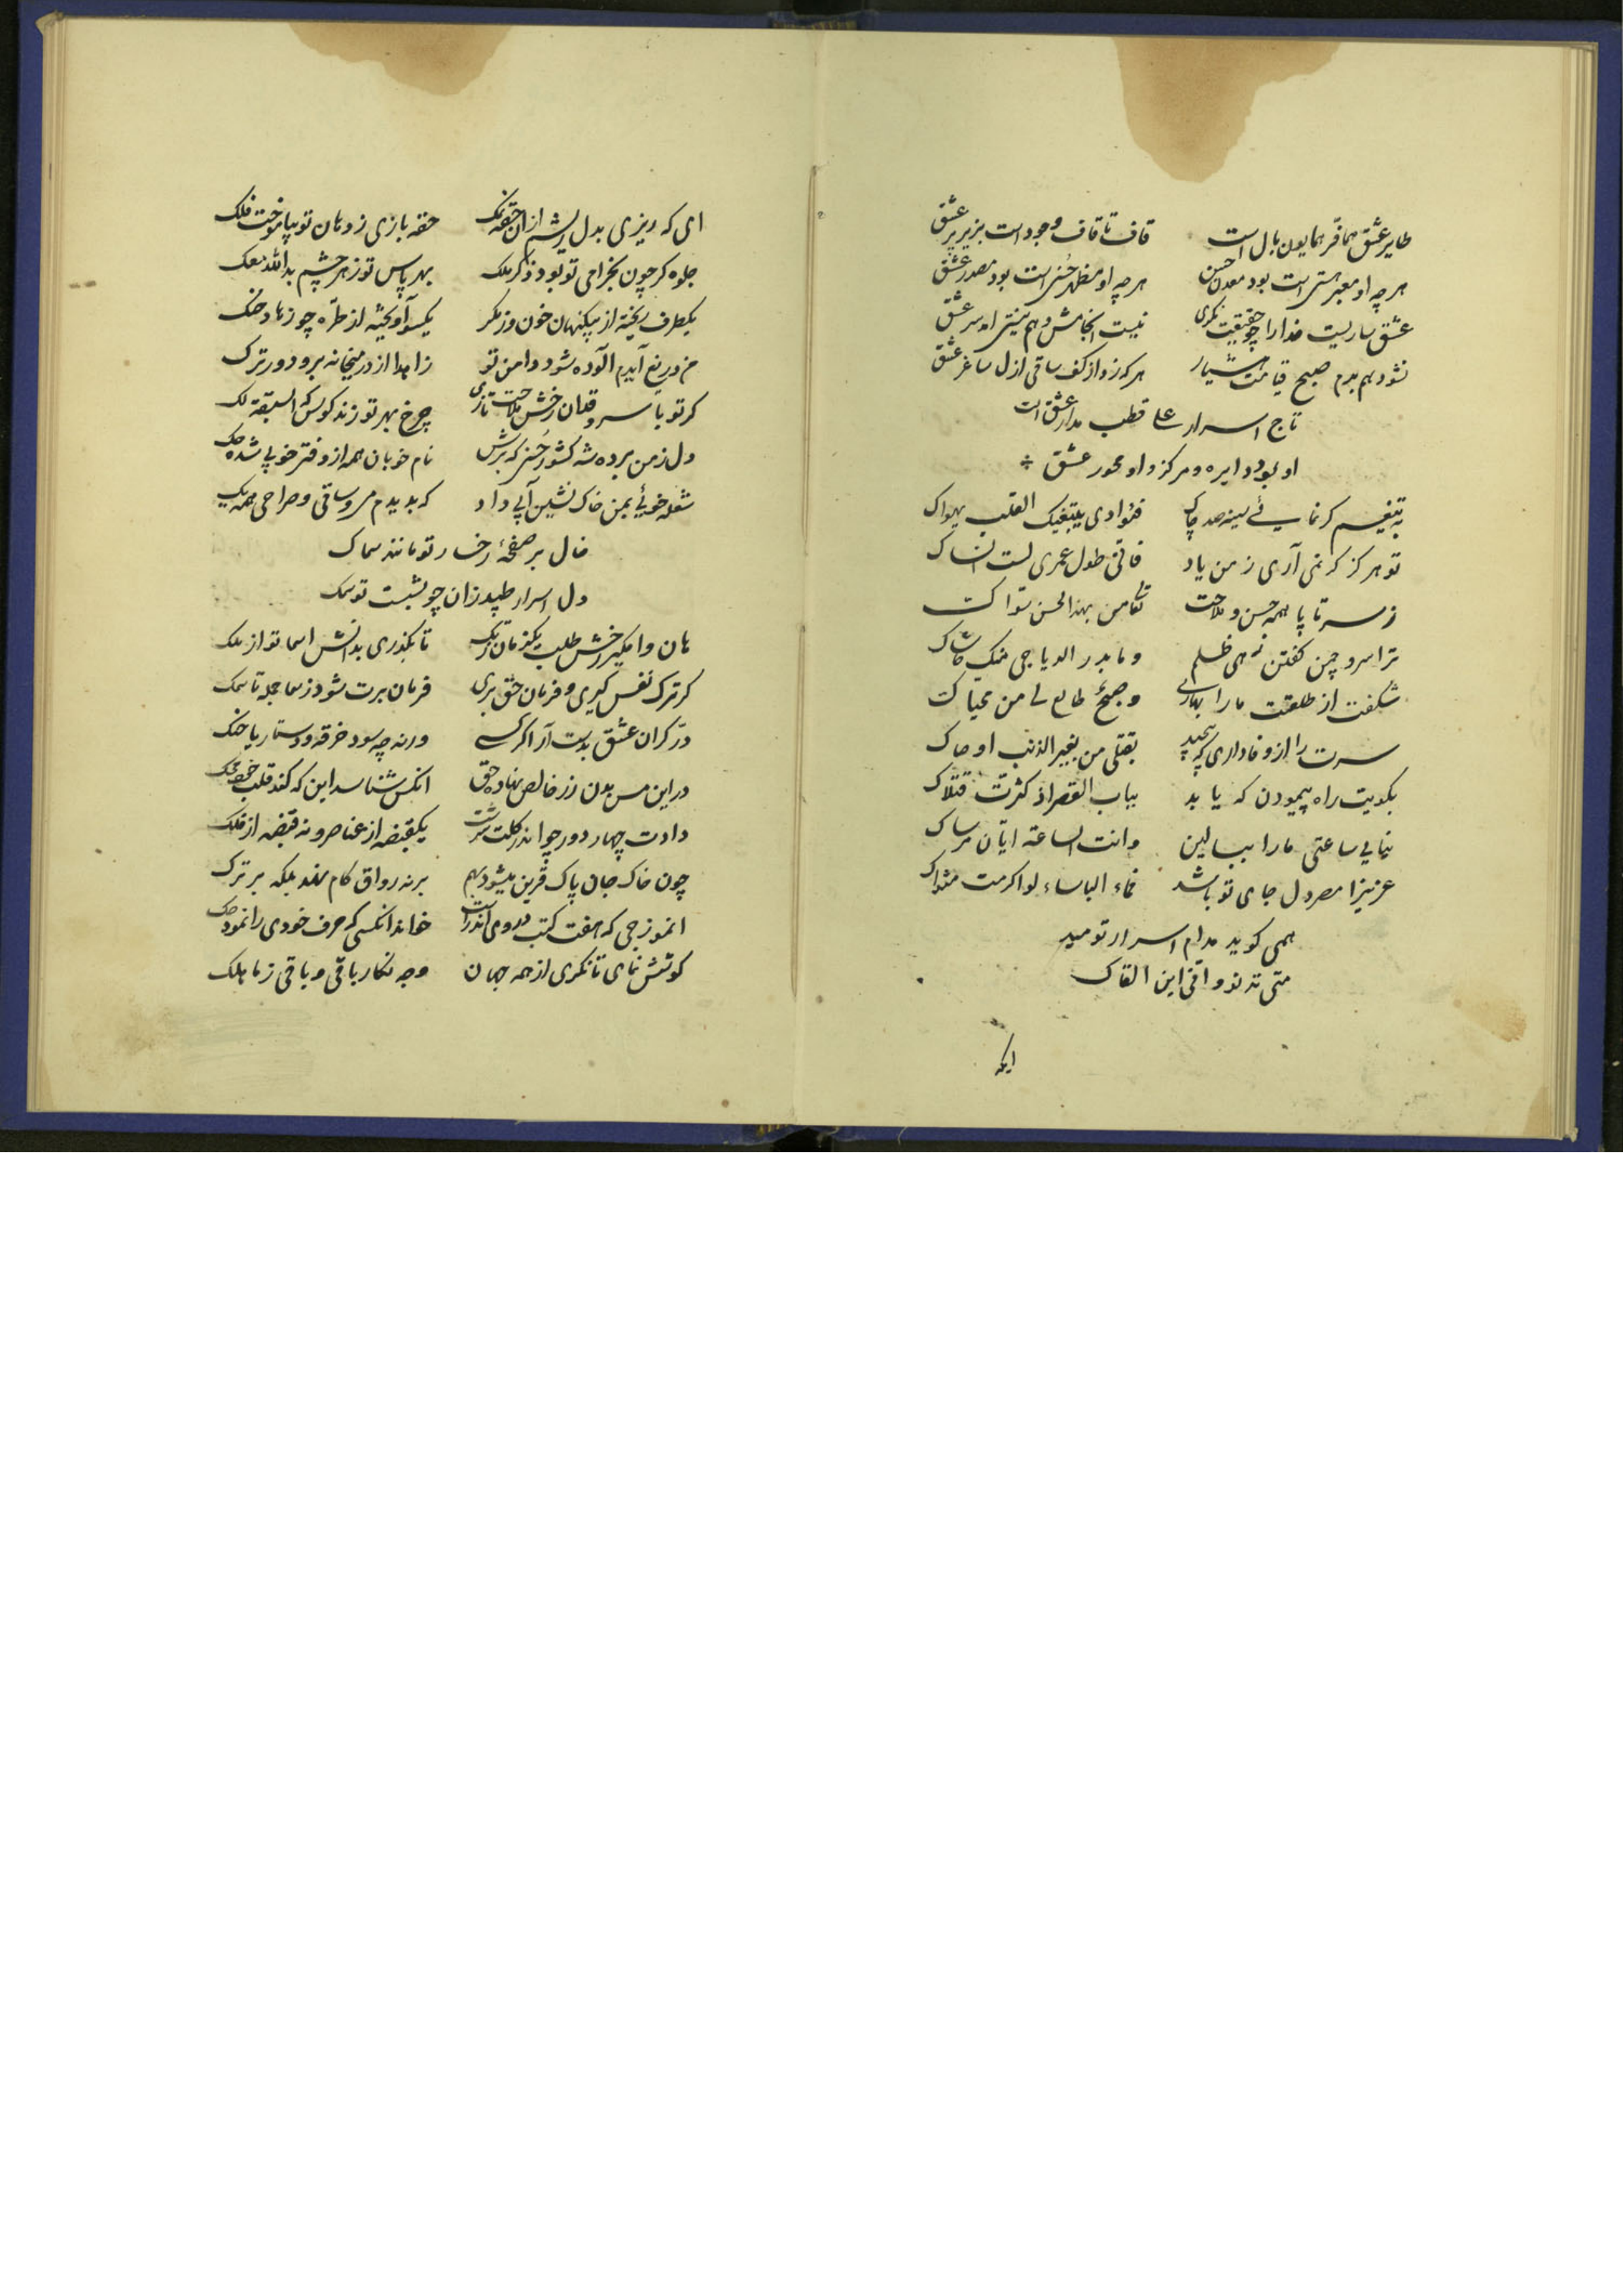 طایر عشق هما فر همایون بال است قاف تا قاف وجود است بزیر پر عشق
هر چه او معبر هستی است بود معدن حسن هر چه او مظهر حسن است بود مصدر عشق
عشق ساریست خدا را چو حقیقت نگری نیست انجامش و هم نیستی اندر سر عشق
نشود هم بدم صبح قیامت هشیار هر که زد از کف ساقی ازل ساغر عشق
تاج اسرار علی قطب مدار عشق است
او بود دایره و مرکز و او محور عشق
به تیغیم گر نمایی سینه صد چاک فئوادی یبتغیک القلب یهواک
تو هرگز گر نمی آری ز من یاد فانی طول عمری لست انساک
ز سر تا پا همه حسن و ملاحت تعالی من بهذا الحسن سواک
ترا سرو چمن گفتن زهی ظلم و ما بدر الدیاجی منک حاشاک
شکفت از طلعتت ما را بهاری و صبح طالع لی من محیاک
سرت را از وفاداری که پیچید بقتلی من بغیر الذنب اوصاک
بکویت راه پیمودن که یابد بباب القصر اذ کثرت قتلاک
نیایی ساعتی ما را ببالین و انت الساعة ایان مرساک
عزیزا مصر دل جای تو باشد فماء الباساء لو اکرمت مثواک
همی گوید مدام اسرار نومید
متی تدنو و انی این القاک
ایکه
ای که ریزی بدل ریشم از آن حقه نمک حقه بازی ز دهان تو بیاموخت فلک
جلوه گر چون بخرامی تو بود ذکر ملک بهر پاس تو ز هر چشم بد الله معک
یکطرف ریخته از بیگنهان خون وز مکر یکسو آویخته از طره چو زهاد حنک
من دریغ آیدم آلوده شود دامن تو زاهدا از در میخانه برو دورترک
گر تو با سرو قدان رخش ملاحت تازی چرخ بهر تو زند کوس که السبقة لک
دل ز من برده شه کشور حسنی که برش نام خوبان همه از دفتر خوبی شده حک
شعله خوئی بمن خاک نشین آبی داد که بدیدم می و ساقی و صراحی همه یک
خال بر صفحهٔ رخسار تو مانند سماک
دل اسرار طپد زان چو بشست تو سمک
هان وامگیر رخش طلب یکزمان ز تک تا بگذری بدانش اسما تو از ملک
گر ترک نفس گیری و فرمان حق بری فرمان برت شود ز سما جمله تا سمک
در گران عشق بدست آر اگر کسی ورنه چه سود خرقه و دستار یا حنک
در این مس بدن زر خالص نهاده حق آنکس شناسد این که کند قلب خود محک
دادت چهار دور چو اندر گلت سرشت یکقبضه از عناصر و نه قبضه از فلک
چون خاک جان پاک قرین میشود بهم بر نه رواق گام نهد بلکه برترک
انموزجی که هفت کتب در وی اندر است خواند آنکسی که حرف خودی را نمود حک
کوشش نمای تا نگری از همه جهان وجه نگار باقی و باقی ز ما هلک